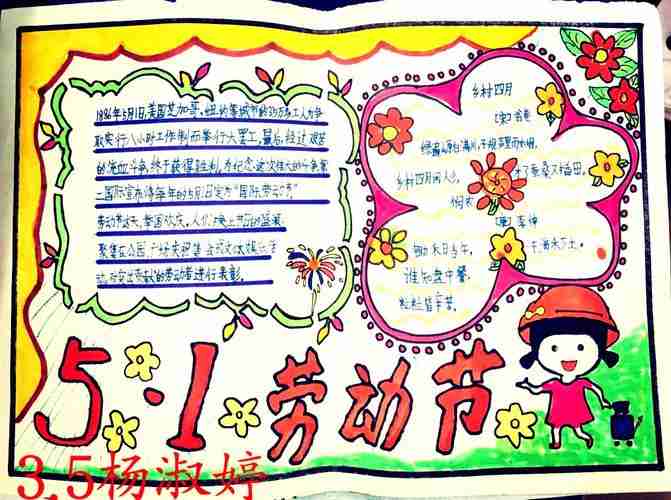 1886年5月1日,美国芝加哥、纽约等城市的35万名工人为争
取实行八小时工作制而举行大罢工,最后,经过艰苦
的流血斗争,终于获得胜利,为纪念这次伟大的斗争,第
二国际宣布将每年的5月1日定为“国际劳动节”。
劳动节这天,举国欢庆。人们换上节日的盛装,
聚集在公园、广场庆祝集会或文体娱乐活
动,对突出贡献的劳动者进行表彰。
乡村四月
绿遍山原白满川,子规声里雨如烟。
乡村四月闲人少,
才了蚕桑又插田。
悯农
锄禾日当午,
汗滴禾下土。
谁知盘中餐,
粒粒皆辛苦。
5·1劳动节
3.5杨淑婷